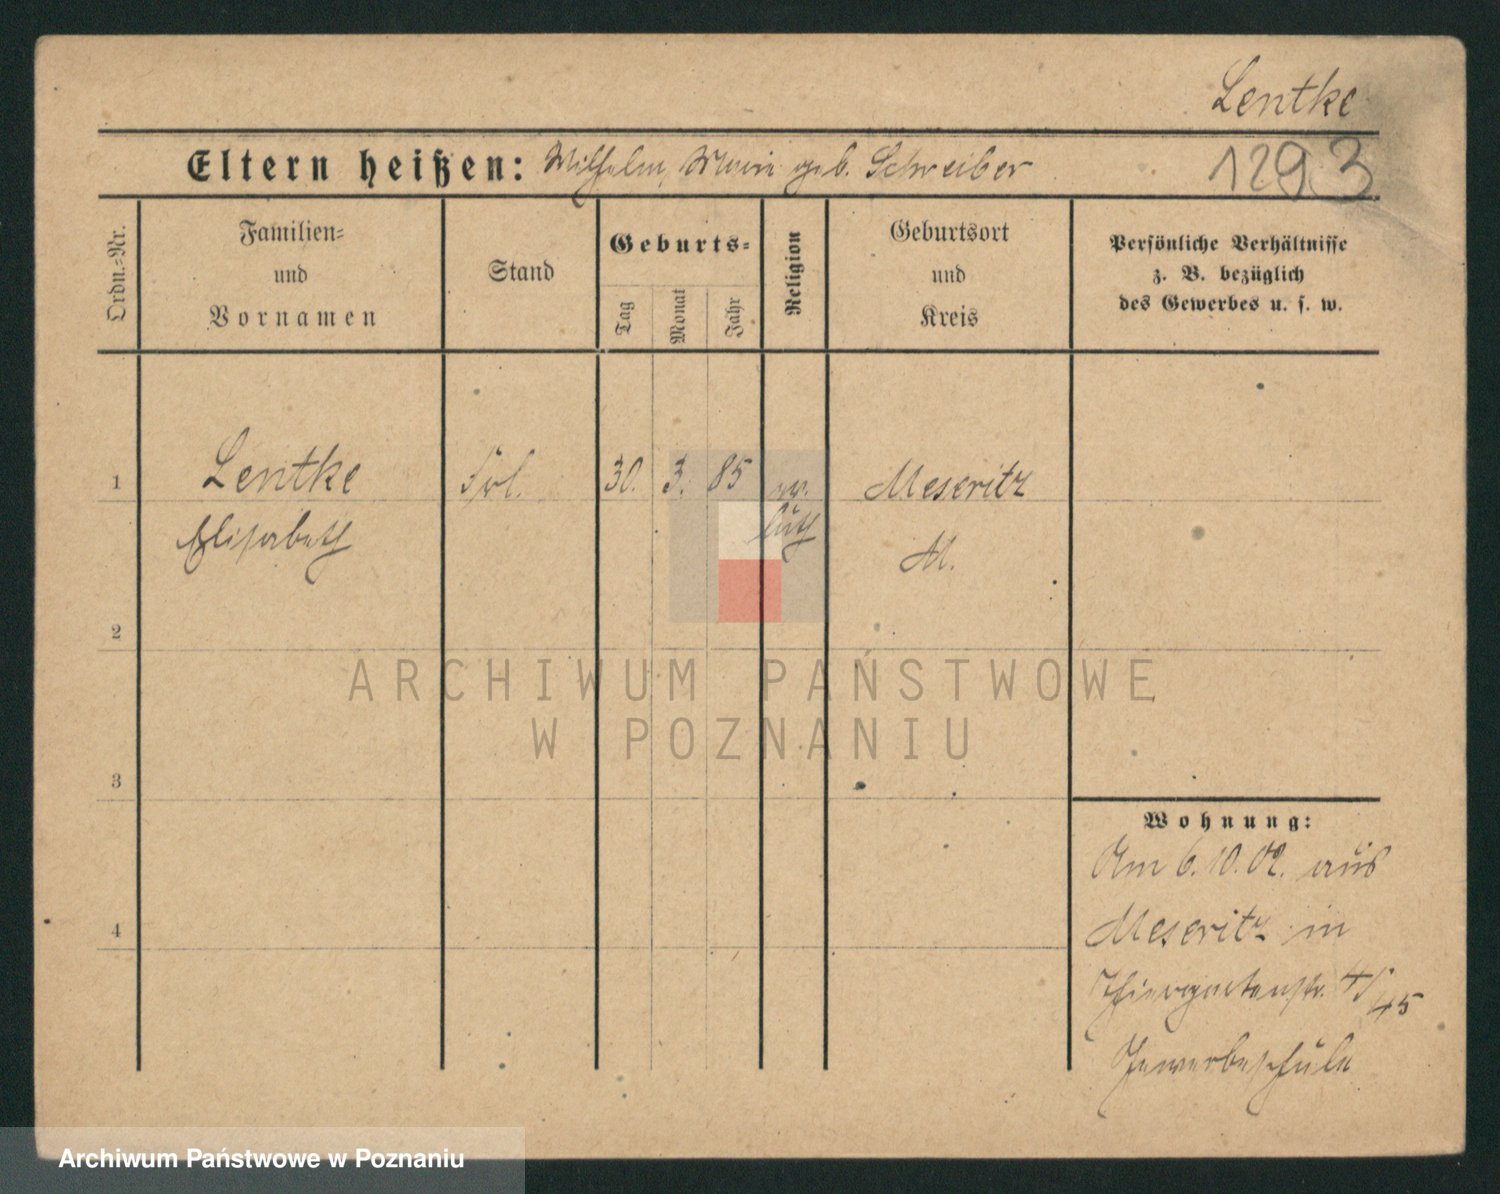 Lentke
1293
Eltern heißen: Wilhelm, Marie geb. Schreiber
Ordn.=Nr.
Familien=
und
Vornamen
Stand
Geburts=
Tag
Monat
Jahr
Religion
Geburtsort
und
Kreis
Persönliche Verhältnisse
z. B. bezüglich
des Gewerbes u. s. w.
1
Lentke
Elisabeth
Frl.
30.
3.
85
ev.
luth
Meseritz
M.
2
3
4
Wohnung:
Am 6.10.02. aus
Meseritz in
Thiergartenstr. 4/
45
Gewerbeschule
ARCHIWUM PAŃSTWOWE
W POZNANIU
Archiwum Państwowe w Poznaniu